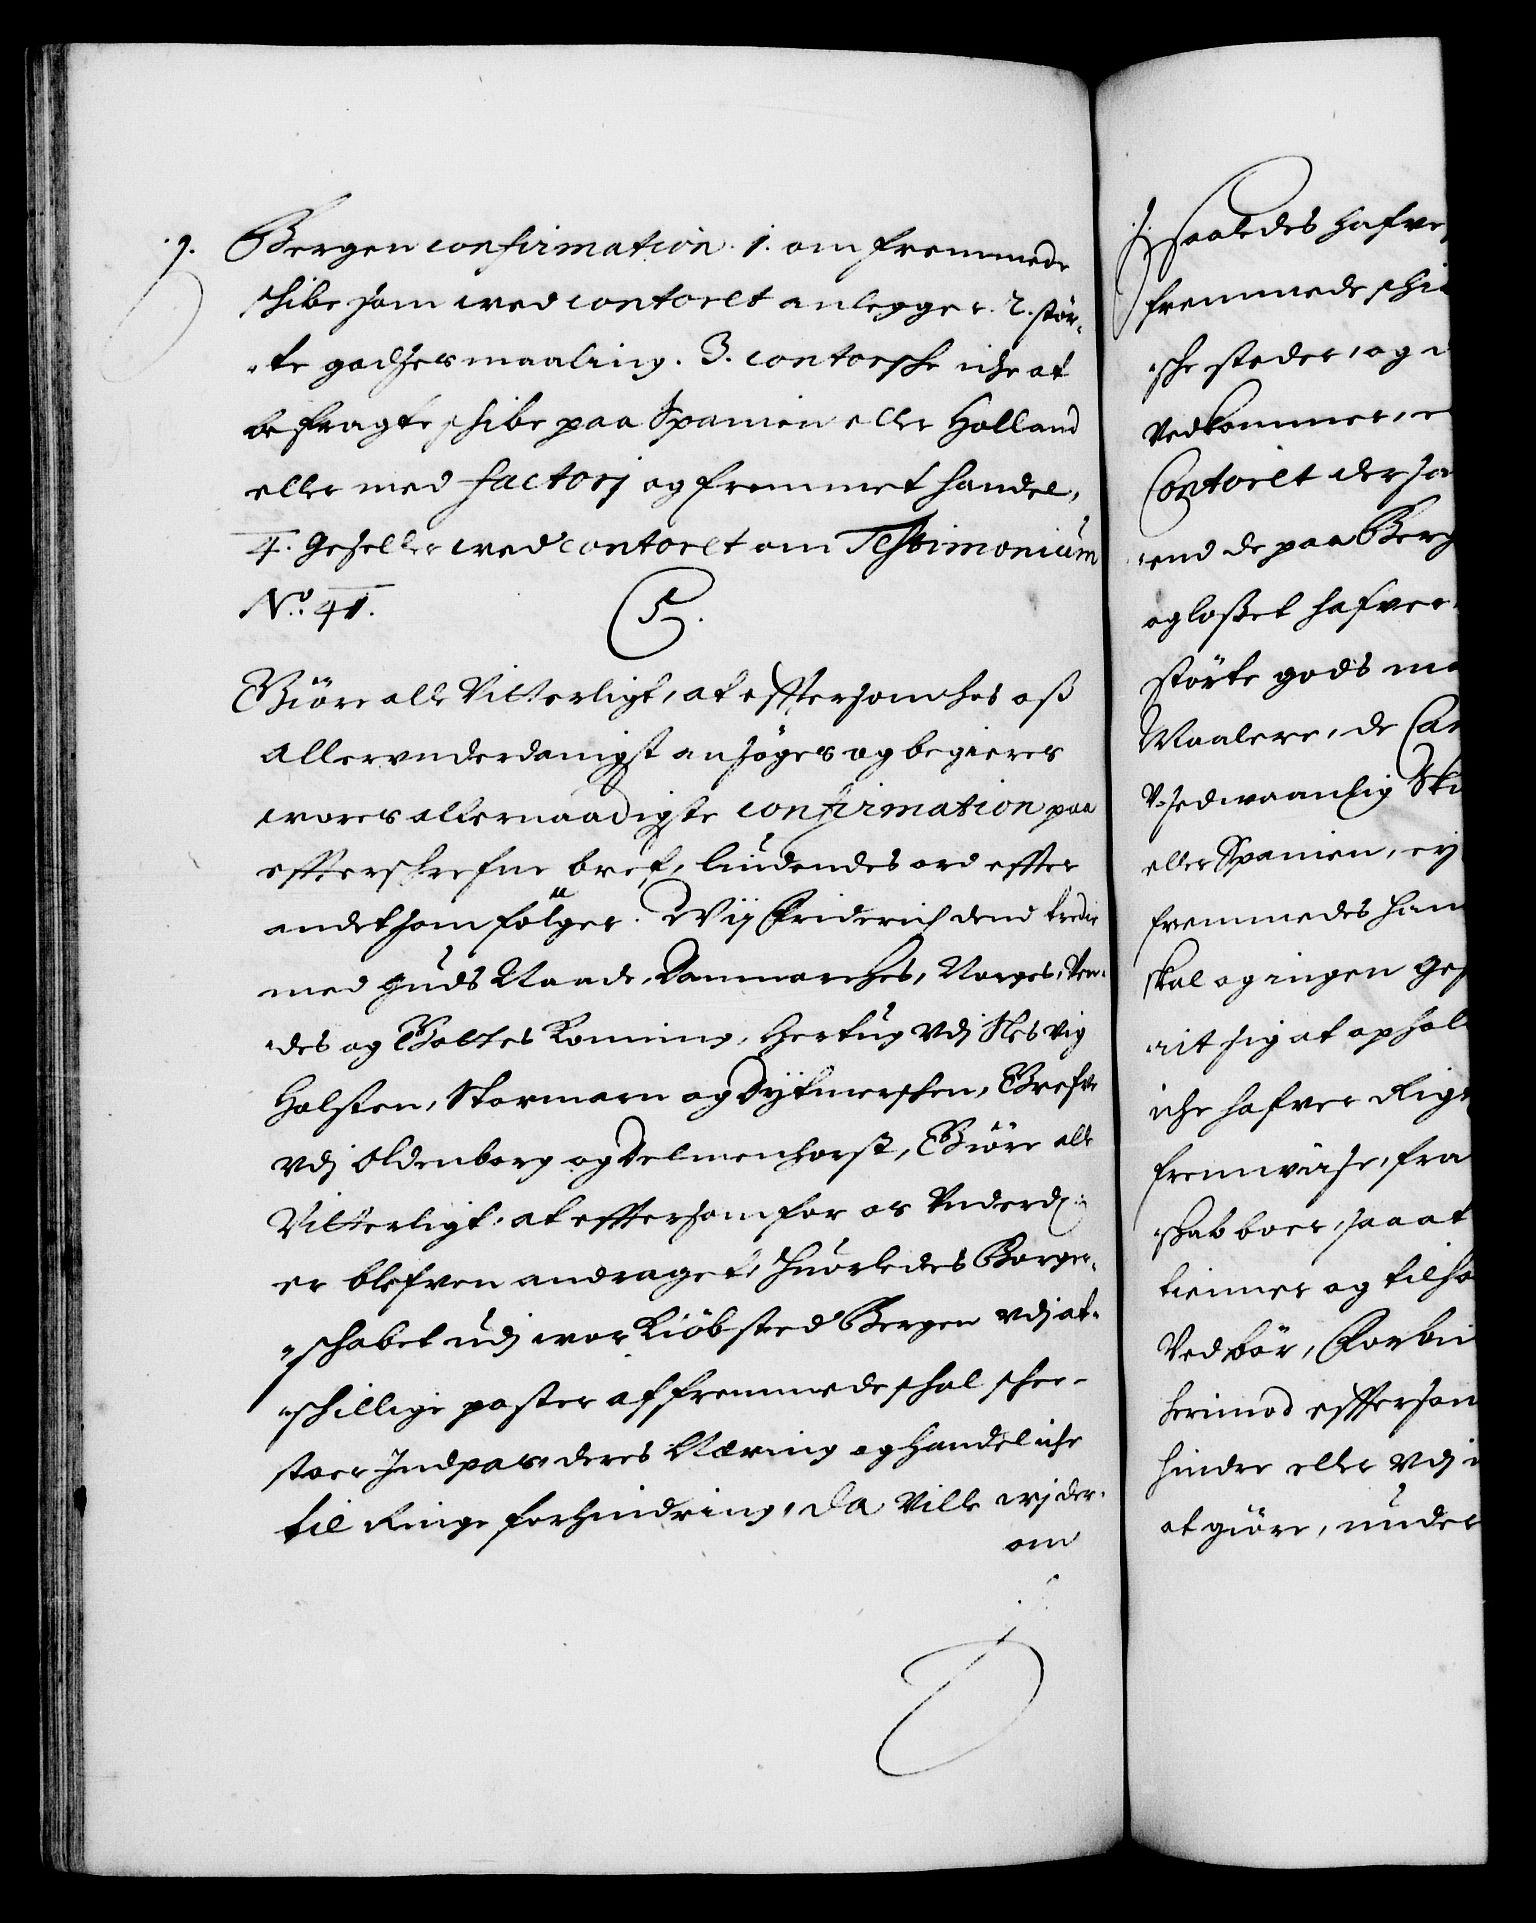 9. Bergen confirmation. 1. om fremmede
schibe som wed contoret anlegger. 2. stör„
„te godses maaling. 3. contorsche iche at
befragte schibe paa Spanien eller Holland
eller med factorj og fremmet handel,
4. Geseller wed contoret om Testimonium
No. 41.
C5.
Giöre alle Vitterligt, at efftersom hos oß
allerunderdanigst ansöges og begieres
wores allernaadigste confirmation paa
effterschrefne bref, liudendes ord effter
andet som fölger. Wij Friderich dend tredie
med Guds Naade, Danmarches, Norges, Ven„
„des og Gottes Konning, Hertug Vdj Slesvig
Holsten, Stormarn og Dytmerschen, Grefve
Vdj Oldenborg og Delmenhorst, Giöre alle
Vitterligt, at efftersom for os Underd:
er blefven andraget, huorledes Borger„
„schabet udj wor Kiöbsted Bergen vdj at„
„schillige poster af fremmede schal schee
stoer Indpas, deres Næring og handel iche
til Ringe forhindring, Da Ville wj der„
om
saaledes hafve
fremmede schi
„sche steder, og
Vedkommer,
Contoret der so
„end de paa Berg
og loßet hafver
störte gods ma
Maalere, de
Vsedwaanlig Ski
eller Spanien, ej
fremmedes han
skal og ingen Ges
„rit sig at ophol
iche hafver Rigt
fremwise, fra
„skab boer, saa at
tienner og tilho
Vedbör, Forbi
herimod efftersom
hindre eller Vdj
at giöre, under